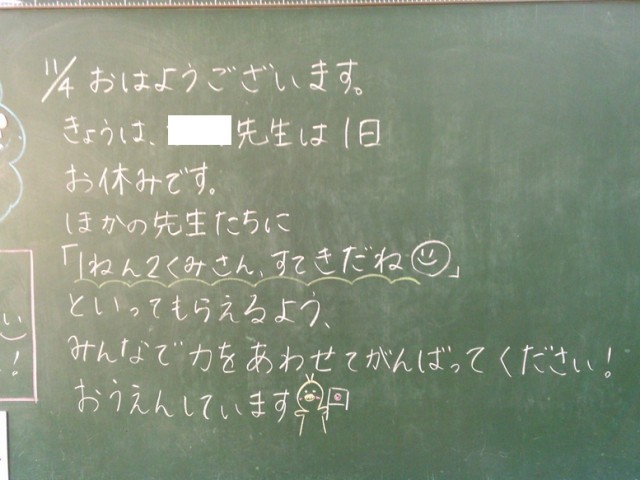 11/4 おはようございます。
きょうは、先生は1日
お休みです。
ほかの先生たちに
「1ねん2くみさん、すてきだね」
といってもらえるよう、
みんなで力をあわせてがんばってください!
おうえんしています
い
!